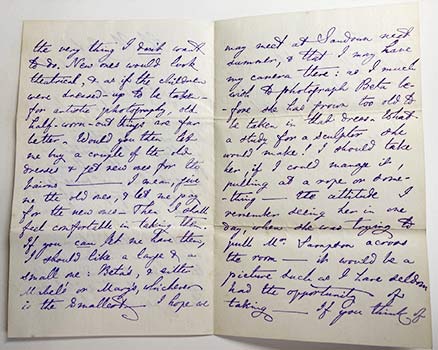 the very thing I don't want
to do. New ones would look
theatrical, & as if the children
were dressed-up to be taken
for artistic photography, old
half-worn-out things are far
better — Would you then let
me buy a couple of the old
dresses & get new ones for the
bairns — I mean, give
me the old ones, & let me pay
for the new ones — Then I shall
feel comfortable in taking them.
If you can let me have them,
I should like a large & a
small one: Beta's, & either
or Mary's, whichever
is the smallest — I hope we
may meet at Sandown next
summer, & that I may have
my camera there: as I much
wish to photograph Beta be-
fore she has grown too old to
be taken in that dress. What
a study for a sculptor she
would make! I should take
her, if I could manage it,
pulling at a rope or some-
thing — the attitude I
remember seeing her in one
day, when she was trying to
pull Mr. Sampson across
the room — it would be a
picture such as I have seldom
had the opportunity of
taking — If you think of